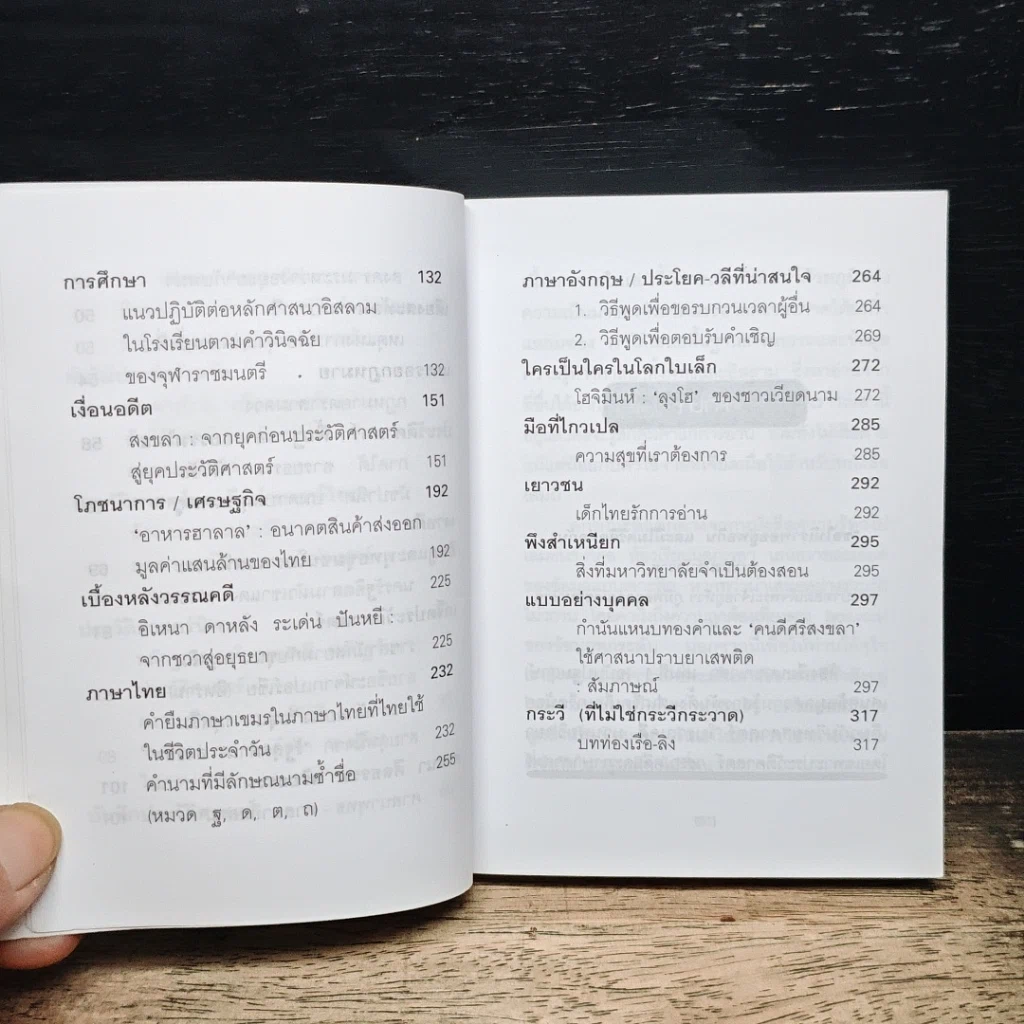 การศึกษา 132
แนวปฏิบัติต่อหลักศาสนาอิสลาม
ในโรงเรียนตามคำวินิจฉัย
ของจุฬาราชมนตรี 132
เงื่อนอดีต 151
สงขลา : จากยุคก่อนประวัติศาสตร์
สู่ยุคประวัติศาสตร์ 151
โภชนาการ / เศรษฐกิจ 192
'อาหารฮาลาล' : อนาคตสินค้าส่งออก
มูลค่าแสนล้านของไทย 192
เบื้องหลังวรรณคดี 225
อิเหนา ดาหลัง ระเด่น ปันหยี :
จากชวาสู่อยุธยา 225
ภาษาไทย 232
คำยืมภาษาเขมรในภาษาไทยที่ไทยใช้
ในชีวิตประจำวัน 232
คำนามที่มีลักษณนามซ้ำชื่อ 255
(หมวด ฐ, ด, ต, ถ)
ภาษาอังกฤษ / ประโยค-วลีที่น่าสนใจ 264
1. วิธีพูดเพื่อขอรบกวนเวลาผู้อื่น 264
2. วิธีพูดเพื่อตอบรับคำเชิญ 269
ใครเป็นใครในโลกใบเล็ก 272
โฮจิมินห์ : 'ลุงโฮ' ของชาวเวียดนาม 272
มือที่ไกวเปล 285
ความสุขที่เราต้องการ 285
เยาวชน 292
เด็กไทยรักการอ่าน 292
พึงสำเหนียก 295
สิ่งที่มหาวิทยาลัยจำเป็นต้องสอน 295
แบบอย่างบุคคล 297
กำนันแหนบทองคำและ 'คนดีศรีสงขลา'
ใช้ศาสนาปราบยาเสพติด
: สัมภาษณ์ 297
กระวี (ที่ไม่ใช่กระวีกระวาด) 317
บทท่องเรือ-ลิง 317